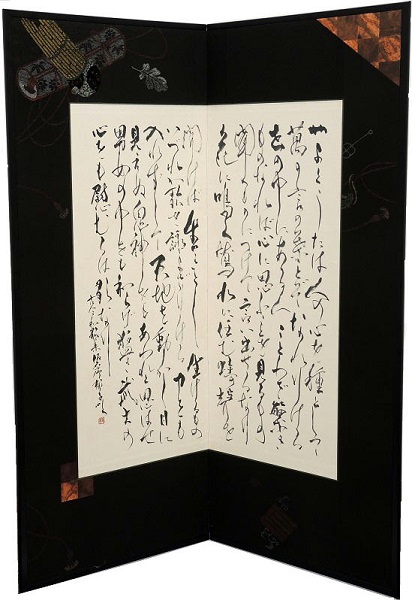 やまとうたは人の心を種として
萬の言の葉とぞなれりける
世の中にある人ことわざ繁き
ものなれば心に思ふことを見るもの
聞くものにつけて言ひ出せるなり
花に鳴く鶯水に住む蛙の声を
聞けば生きとし生けるもの
いづれか歌を詠まざりける力をも
入れずして天地を動かし目に
見えぬ鬼神をもあはれと思はせ
男女の中をも和らげ猛き武士の
心をも慰むるは歌なり